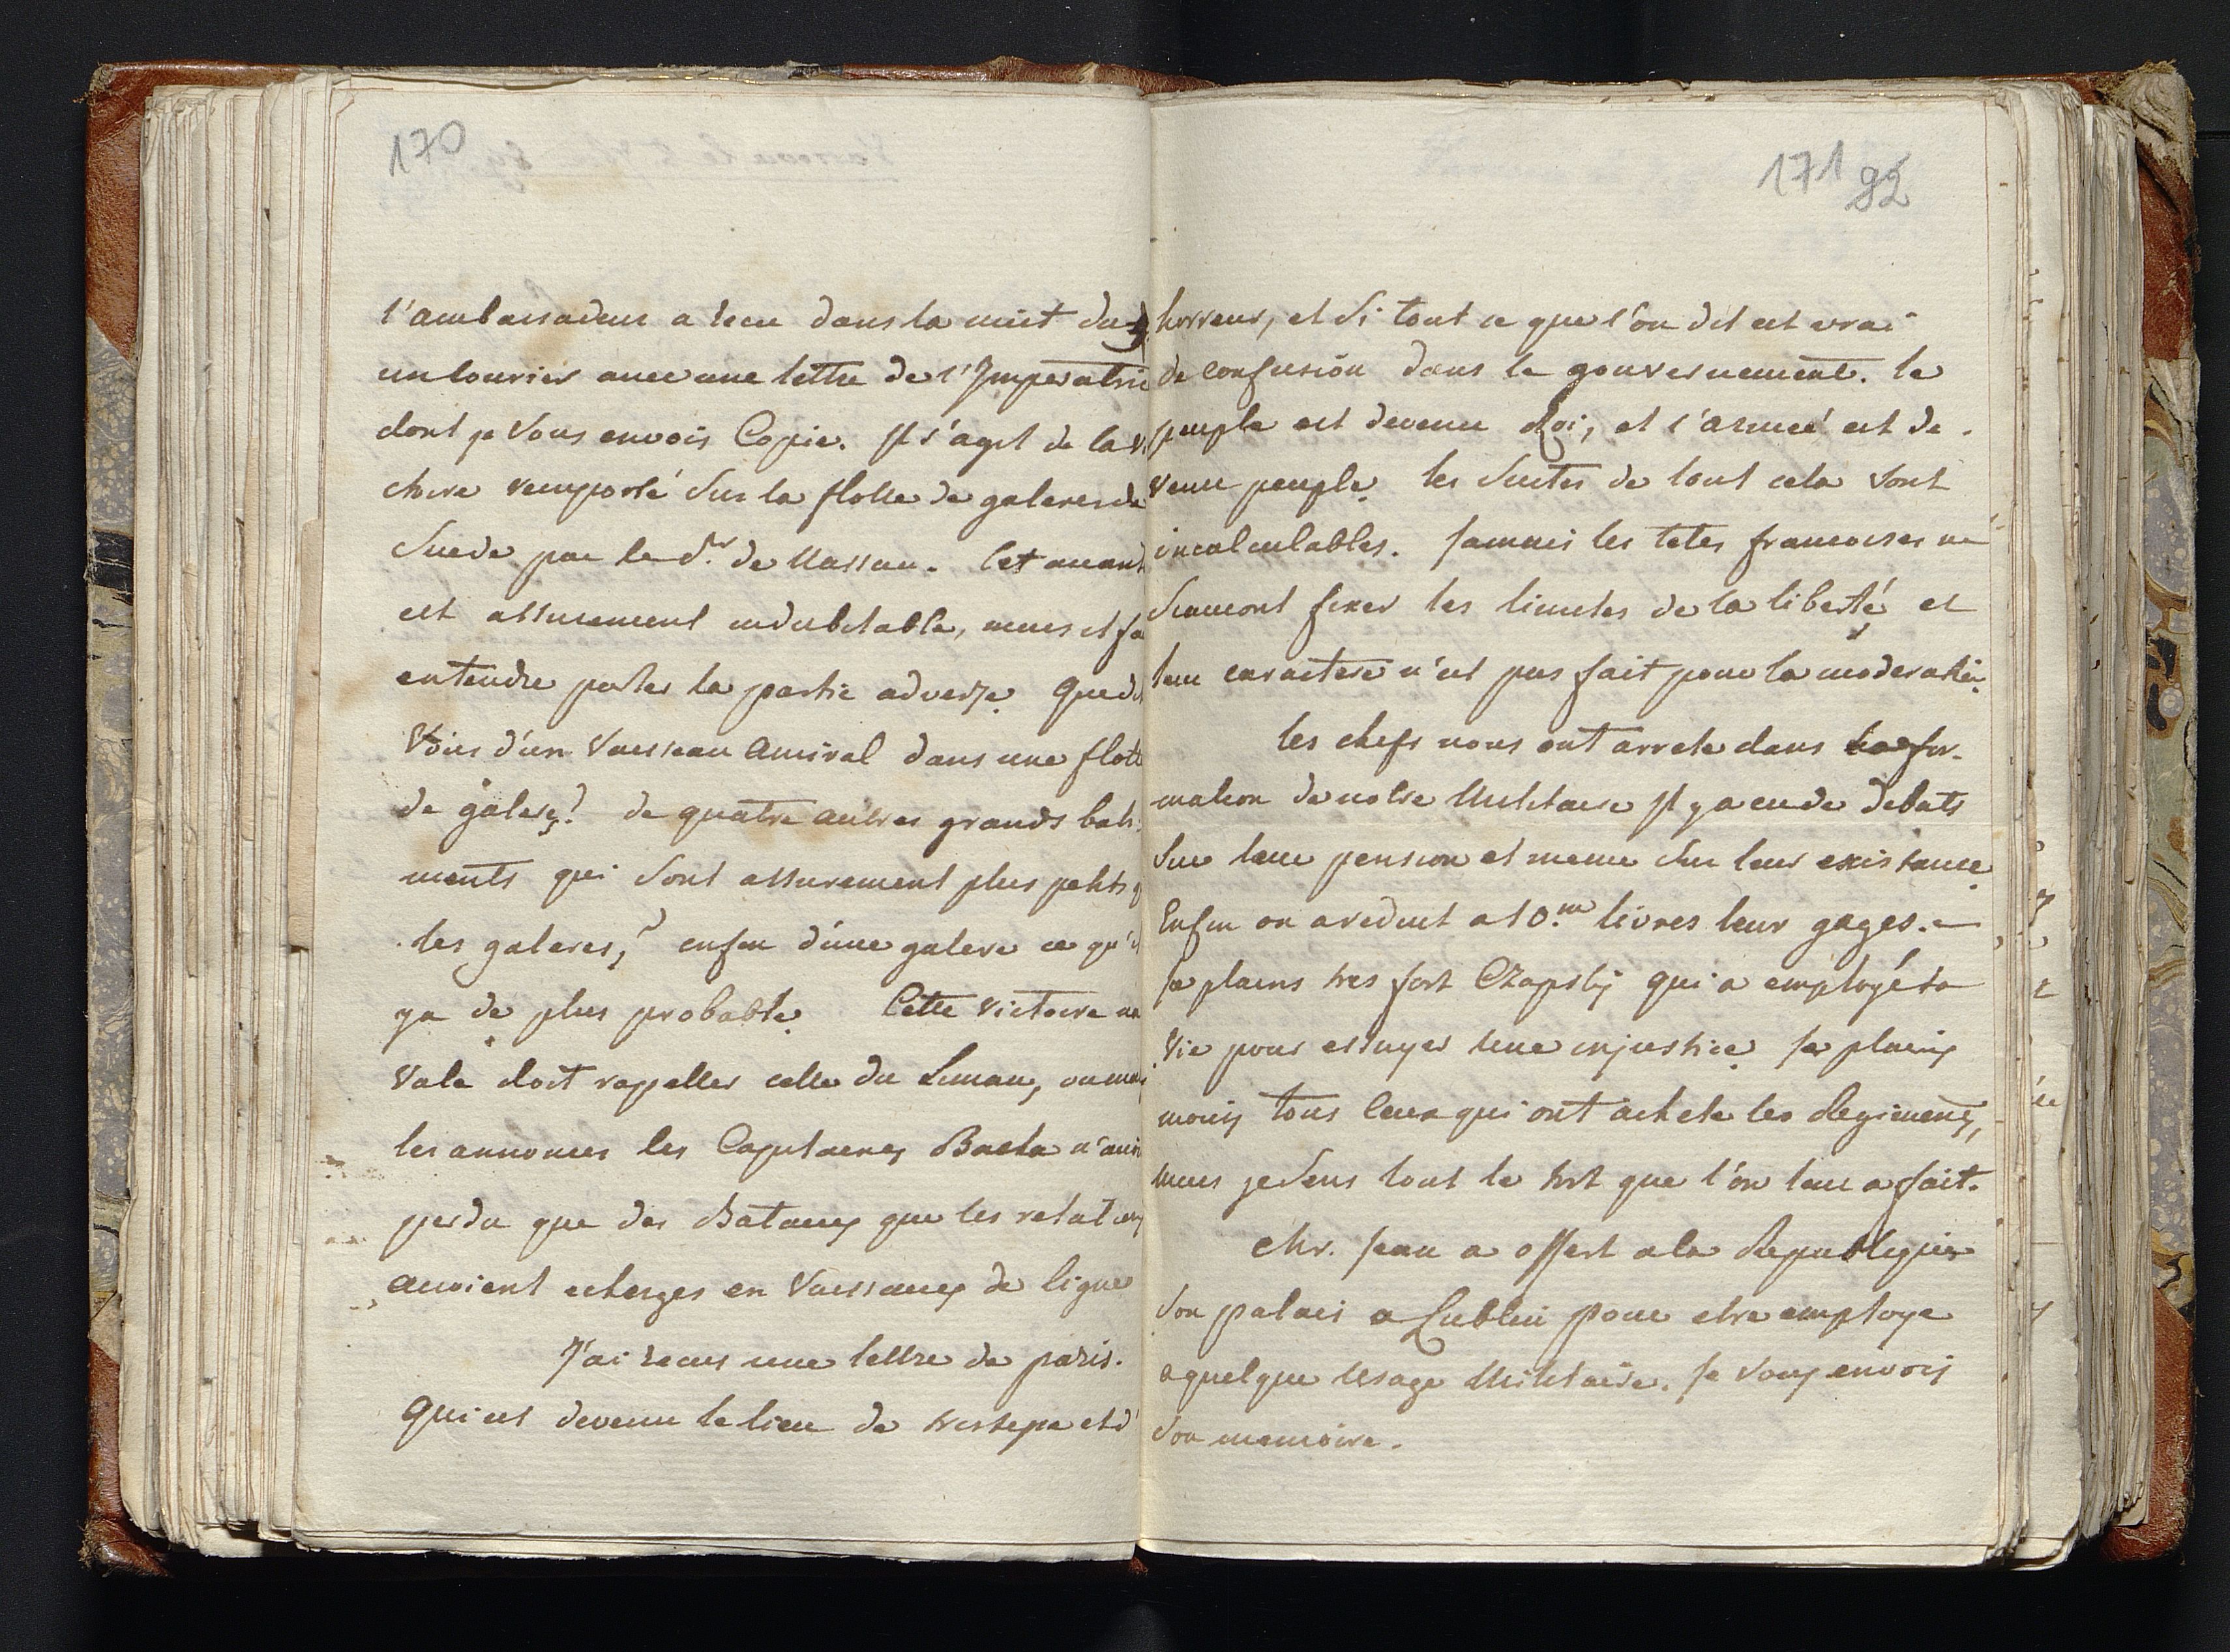 170
l'ambassadeur a recu dans la nuit du
un Courier avec une lettre de l'Imperatrice
dont je Vous envois Copie. Il s'agit de la vi
ctoire remporté sur la flotte de galeres de
Suede par le d.r de Nassau. Cet avant
est assurement indubitable, mais il fa
entendre parler la partie adverse. Que di
Vous d'un Vaisseau Amiral dans une flott
de galere? de quatre autres grands bati
ments qui sont assurement plus petits q
les galeres,? enfin d'une galere ce qu'il
ya de plus probable. Cette Victoire na
vale doit rappeller celle du Liman, ou
les annonces les Capitaines Bacha n'avoi
perdu que des Bateaux que les relations
avoient erherges en Vaisseaux de ligne
J'ai recus une lettre de paris.
Qui est devenu le lieu de et d'
171 92
horreur, et si tout ce que l'on dit est vrai
de confusion dans le gouvernement. le
peuple est devenu Roi, et l'armeé est de.
venue peuple. les Suites de tout cela sont
incalculables. Jamais les tetes francoises ne
scauront fixer les limites de la liberté, et
leur caractere n'est pas fait pour la moderation.
les chefs nous ont arreté dans la for.
mation de notre Militaire Il y a eu de debats
sur leur pension et meme sur leur existance.
Enfin on a reduit a 10.m livres leur gages.
Je plains tres fort Czapskij qui a employé sa
Vie pour essuyer une injustice. Je plains
moins tous Ceux qui ont acheté les Regiments,
mais je sens tout le tort que l'on leur a fait.
Chr. Jean a offert a la Republique
son palais a Lublin pour etre employe
a quelque usage Militaire. Je Vous envois
son memoire.